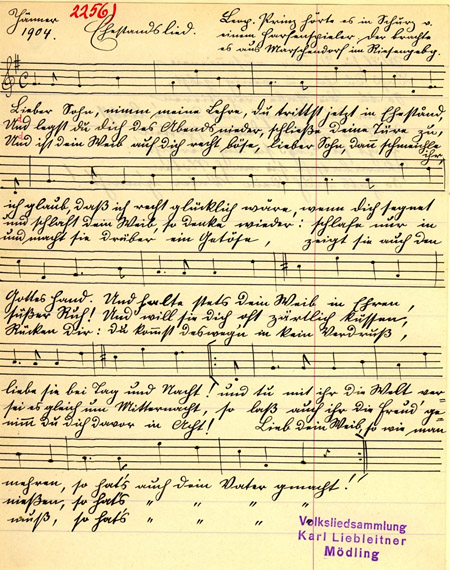 Jänner
1904.
2256)
Ehestandslied.
Leop. Prinz hörte es in Schurz v.
einem Harfenspieler. Der brachte
es aus Marschendorf im Riesengebg.
Lieber Sohn, nimm meine Lehre, du trittst jetzt in Ehestand,
Und legst du dich des Abends nieder, schließe deine Türe zu,
Und ist dein Weib auf dich recht böse, lieber Sohn, dann schmeichle
ihr,
ich glaub, daß ich recht glücklich wäre, wenn dich segnet
und schlaft dein Weib, so denke wieder: schlafe nur in
und macht sie drüber ein Getöse, zeigt sie auch den
Gottes Hand. Und halte stets dein Weib in Ehren,
süßer Ruh! Und will sie dich oft zärtlich küssen,
Rücken dir: Du kommst deswegn in kein Verdruß,
liebe sie bei Tag und Nacht! und tu mit ihr die Welt ver=
sei es gleich um Mitternacht, so laß auch ihr die Freud ge=
nimm du dich davor in Acht! Lieb dein Weib, so wie man
mehren, so hat's auch dein Vater gmacht!
nießen, so hat's " " " "
muß, so hat's " " " "
Volksliedsammlung
Karl Liebleitner
Mödling